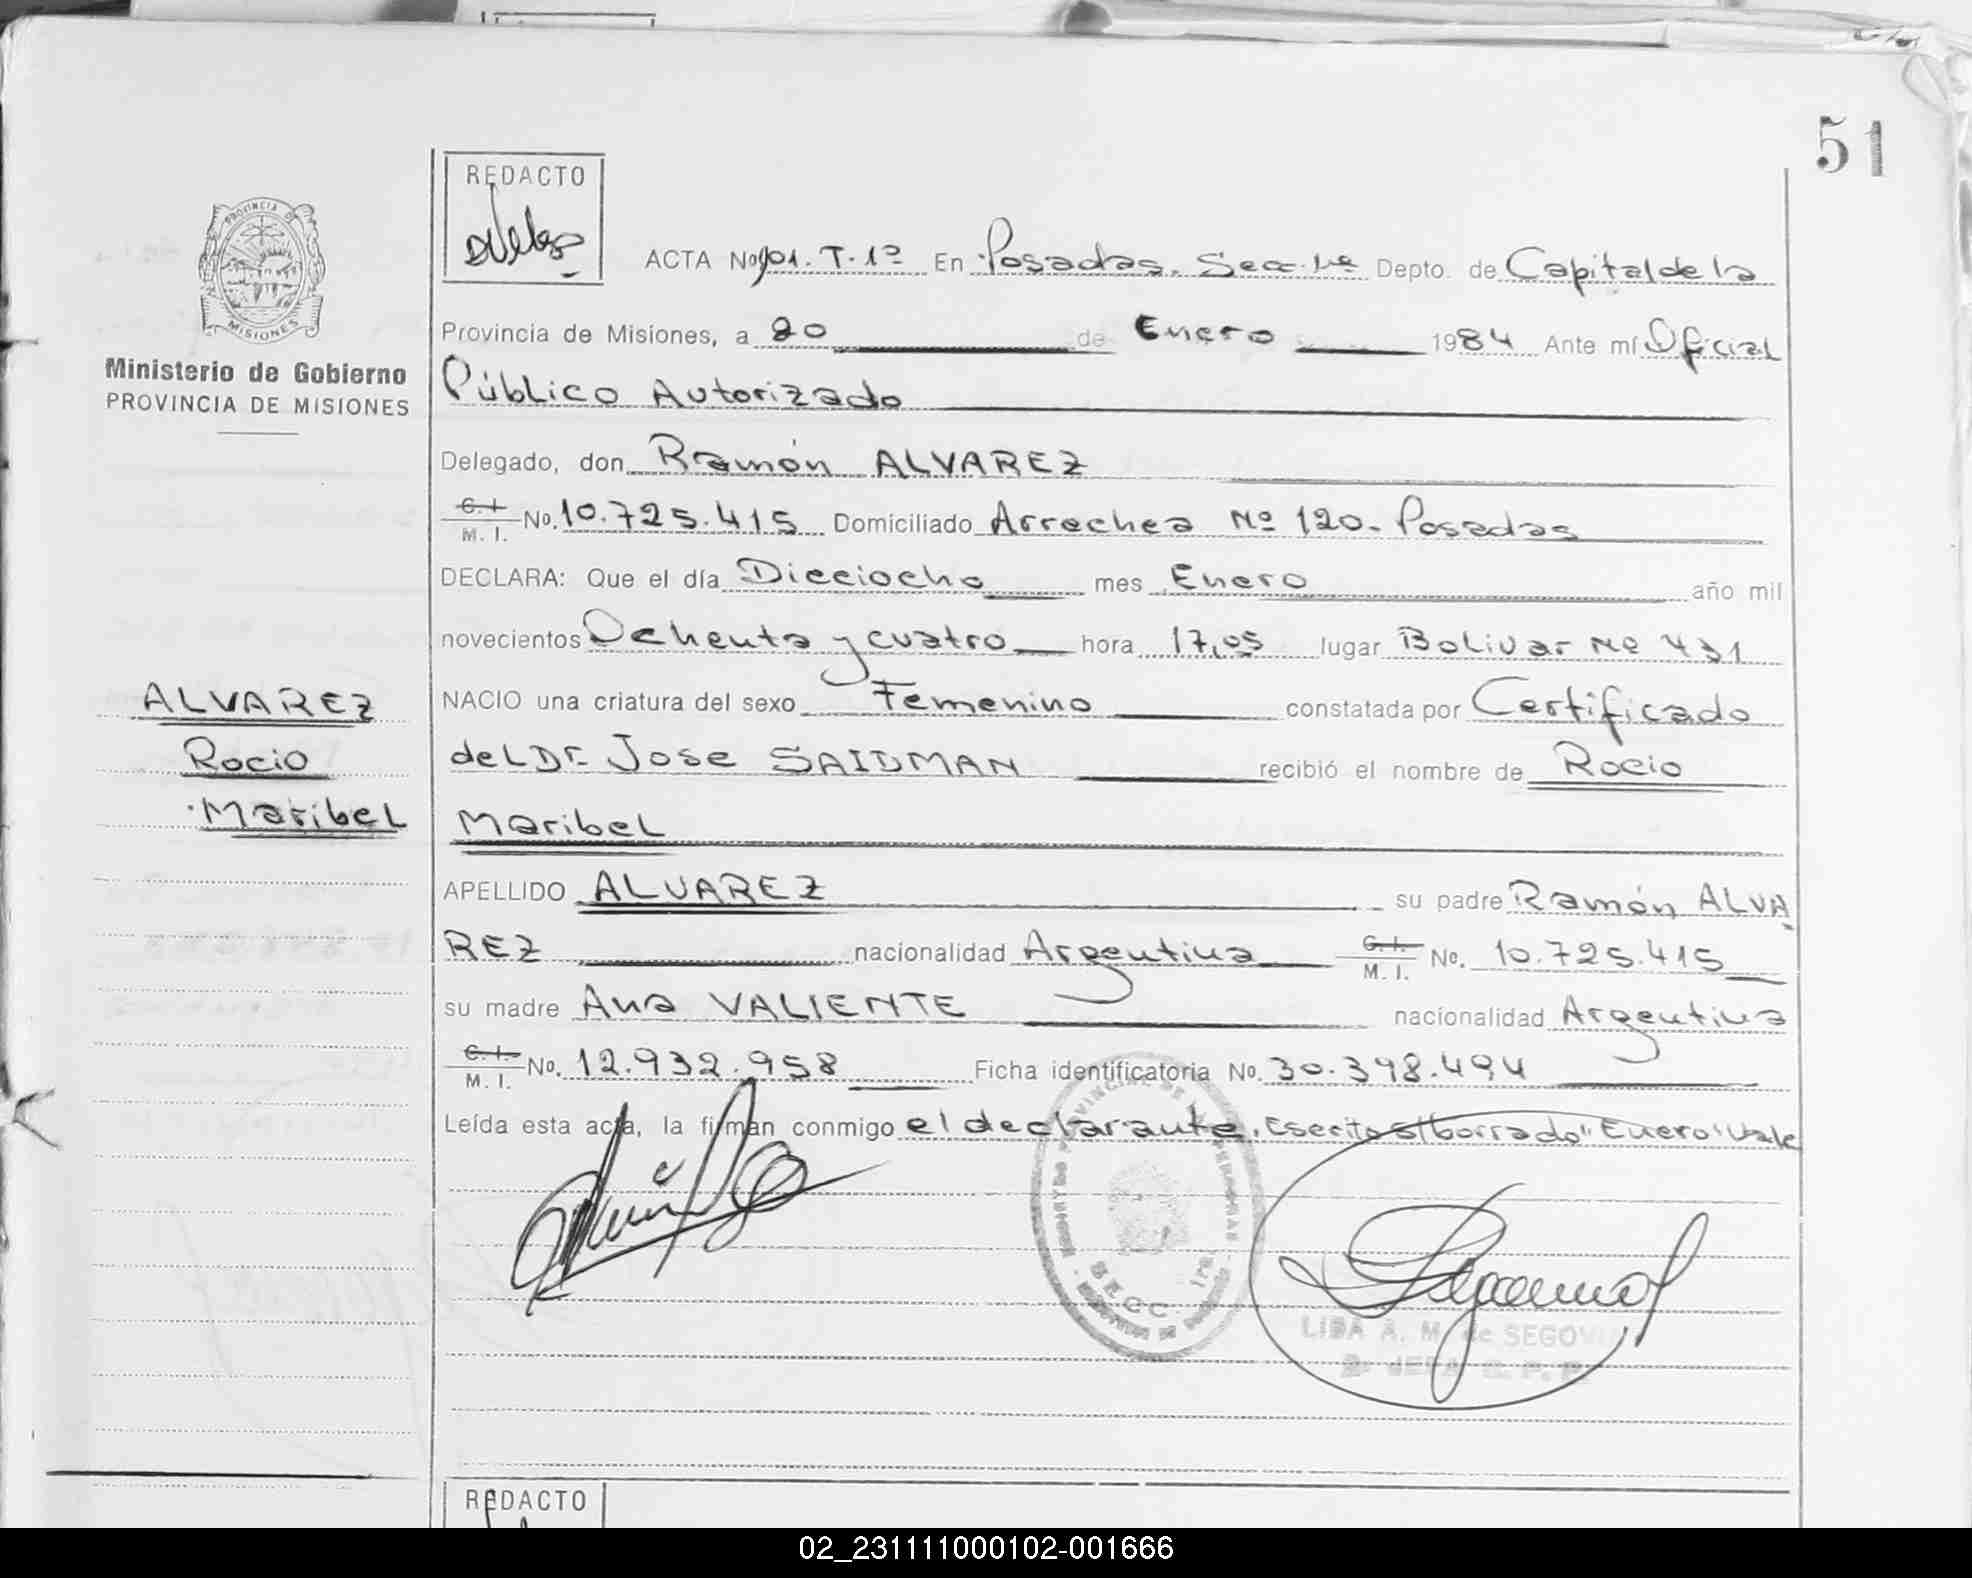 51
REDACTO
PROVINCIA DE
MISIONES
Ministerio de Gobierno
PROVINCIA DE MISIONES
ACTA No 101. T. 1º En Posadas. Secc. 1ª Depto. de Capital de la
Provincia de Misiones, a 20 de Enero 1984 Ante mí Oficial
Público Autorizado
Delegado, don Ramón ALVAREZ
C. I. M. I. No. 10.725.415 Domiciliado Arrechea Nº 120 - Posadas
DECLARA: Que el día Dieciocho mes Enero año mil
novecientos Ochenta y cuatro hora 17,05 lugar Bolivar Nº 431
NACIO una criatura del sexo Femenino constatada por Certificado
del Dr. Jose SAIDMAN recibió el nombre de Rocio
Maribel
ALVAREZ
Rocio
Maribel
APELLIDO ALVAREZ su padre Ramón ALVA
REZ nacionalidad Argentina C. I. M. I. No. 10.725.415
su madre Ana VALIENTE nacionalidad Argentina
C. I. M. I. No. 12.932.958 Ficha identificatoria No. 30.398.494
Leída esta acta, la firman conmigo el declarante. Escrito s/borrado "Enero" Vale
SECC. 1ra.
LIDA A. M. de SEGOVIA
REDACTO
02_231111000102-001666